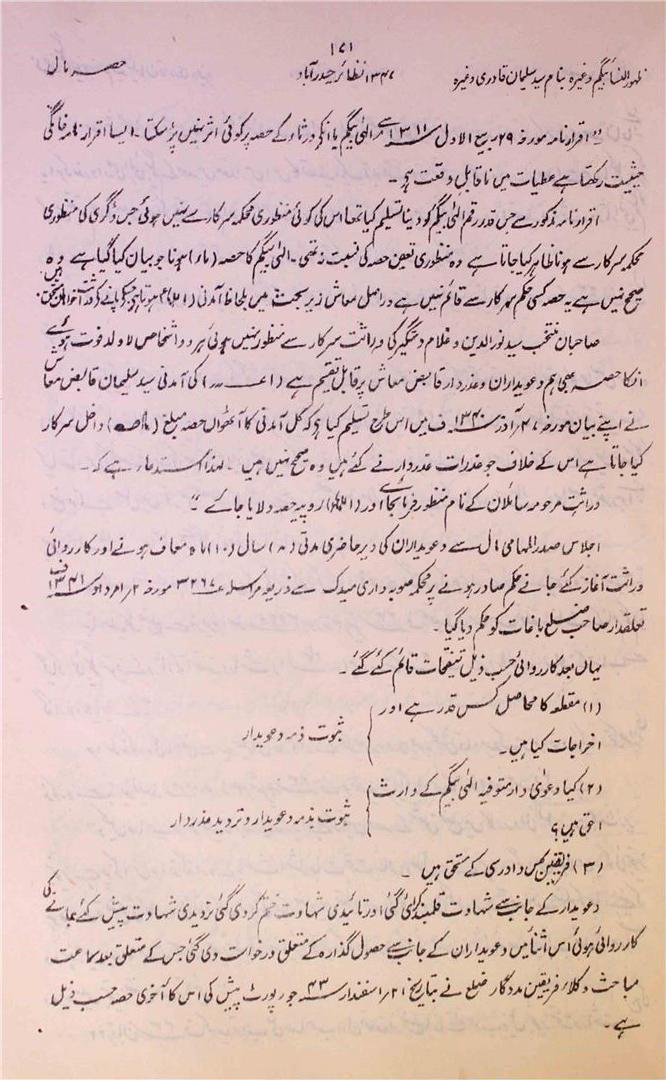 ۱۷۱
ظہور النسا بیگم وغیرہ بنام سید سلمان قادری وغیرہ ۱۳۴۷ نظائر حیدرآباد حصہ مال
"اقرار نامہ مورخہ ۲۹ ربیع الاول ۱۳۱۱ سے الٰہی بیگم یا انکے ورثاء کے حصہ پر کوئی اثر نہیں پڑ سکتا۔ ایسا اقرار نامہ خانگی
حیثیت رکھتا ہے عطیات میں ناقابل وقعت ہے۔
اقرار نامہ مذکور سے جس قدر رقم الٰہی بیگم کو دینا تسلیم کیا تھا اس کی کوئی منظوری محکمہ سرکار سے نہیں ہوئی جس ڈگری کی منظوری
محکمہ سرکار سے ہونا ظاہر کیا جاتا ہے وہ منظوری تعین حصہ کی نسبت نہ تھی۔ الٰہی بیگم کا حصہ ہونا جو بیان کیا گیا ہے وہ
صحیح نہیں ہے یہ حصہ کسی حکم سرکار سے قائم نہیں ہے دراصل معاش زیر بحث میں بلحاظ آمدنی
صاحبان منتخب سید نور الدین و غلام دستگیر کی وراثت سرکار سے منظور نہیں ہوئی ہر دو اشخاص لاولد فوت ہوئے
انکا حصہ بھی ہم دعویداران و عذردار قابض معاش پر قابل تقسیم ہے کی آمدنی سید سلیمان قابض معاش
نے اپنے بیان مورخہ ۲۷ آذر ۱۳۴۰ ف میں اس طرح تسلیم کیا ہے کہ کل آمدنی کا آٹھواں حصہ مبلغ داخل سرکار
کیا جاتا ہے اس کے خلاف جو عذرات عذردار نے کئے ہیں وہ صحیح نہیں ہیں۔ لہذا استدعا ہے کہ۔
وراثت مرحومہ سائلان کے نام منظور فرمائی جائے اور روپیہ حصہ دلایا جائے"
اجلاس صدر المہامی مال سے دعویداران کی دیر حاضری مدتی (۸) سال (۱۰) ماہ معاف ہونے اور کارروائی
وراثت آغاز کئے جانے حکم صادر ہونے پر محکمہ صوبہ داری میدک سے ذریعہ مراسلہ ۳۲۶۷ مورخہ ۲؍ امرداد ۱۳۴۱ ف
تعلقدار صاحب ضلع باغات کو حکم دیا گیا۔
یہاں بعد کارروائی حسب ذیل تنقیحات قائم کئے گئے۔
(۱) مقطعہ کا محاصل کس قدر ہے اور
اخراجات کیا ہیں۔ ثبوت ذمہ دعویدار
(۲) کیا دعوی دار متوفیہ الٰہی بیگم کے وارث
احق ہیں؟ ثبوت بذمہ دعویدار و تردید عذردار
(۳) فریقین کس دادرسی کے مستحق ہیں۔
دعویدار کے جانب سے شہادت قلمبند کرائی گئی اور تائیدی شہادت ختم کر دی گئی تردیدی شہادت پیش کئے جانے کی
کارروائی ہوئی اس اثنا میں دعویداران کے جانب سے حصول گذارہ کے متعلق درخواست دی گئی جس کے متعلق بعد سماعت
مباحث وکلاء فریقین مددگار ضلع نے بتاریخ ۲۱؍ اسفندار ۴۳ جو رپورٹ پیش کی اس کا آخری حصہ حسب ذیل
ہے۔